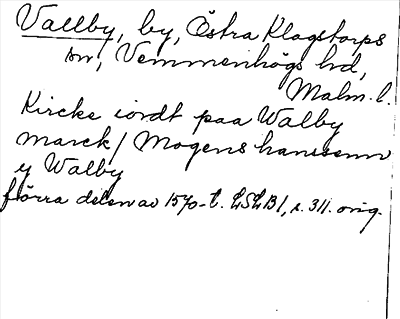 Vallby, by, Östra Klagstorps
sn, Vemmenhögs hd,
Malm. l.
Kircke iordt paa Walby
marck / Mogens hanssenn
y Walby
förra delen av 1570-t. LSLB1, s. 311. orig.